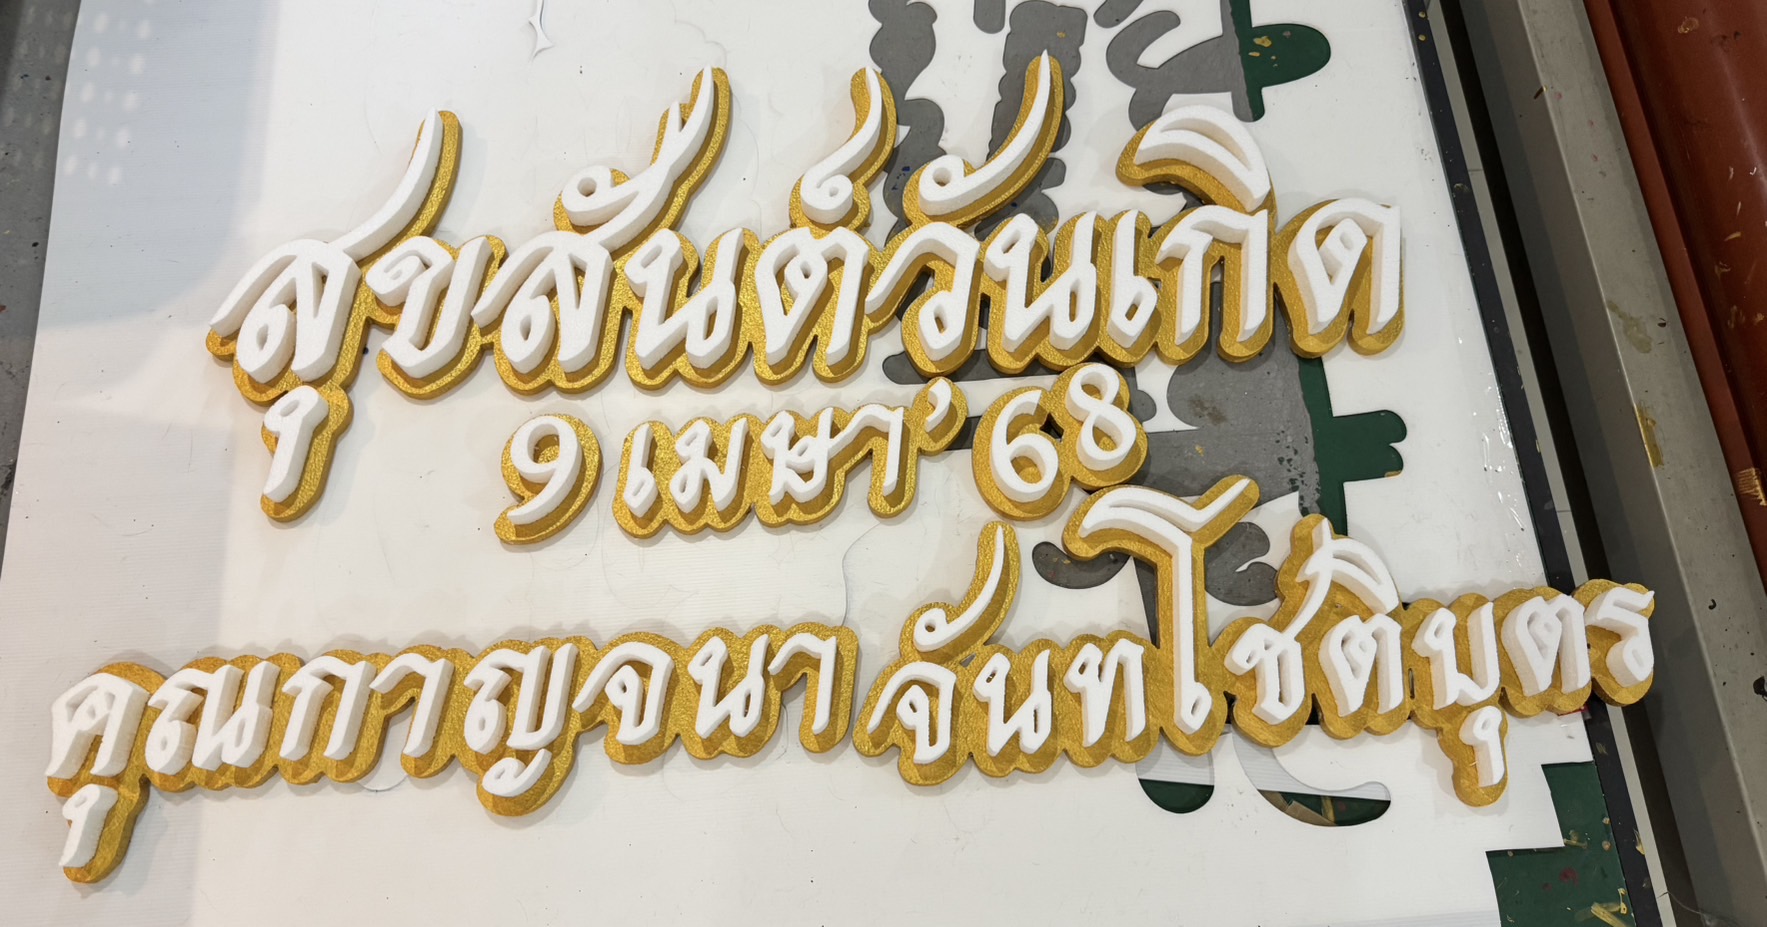 สุขสันต์วันเกิด
9 เมษา’ 68
คุณกาญจนา จันทโชติบุตร